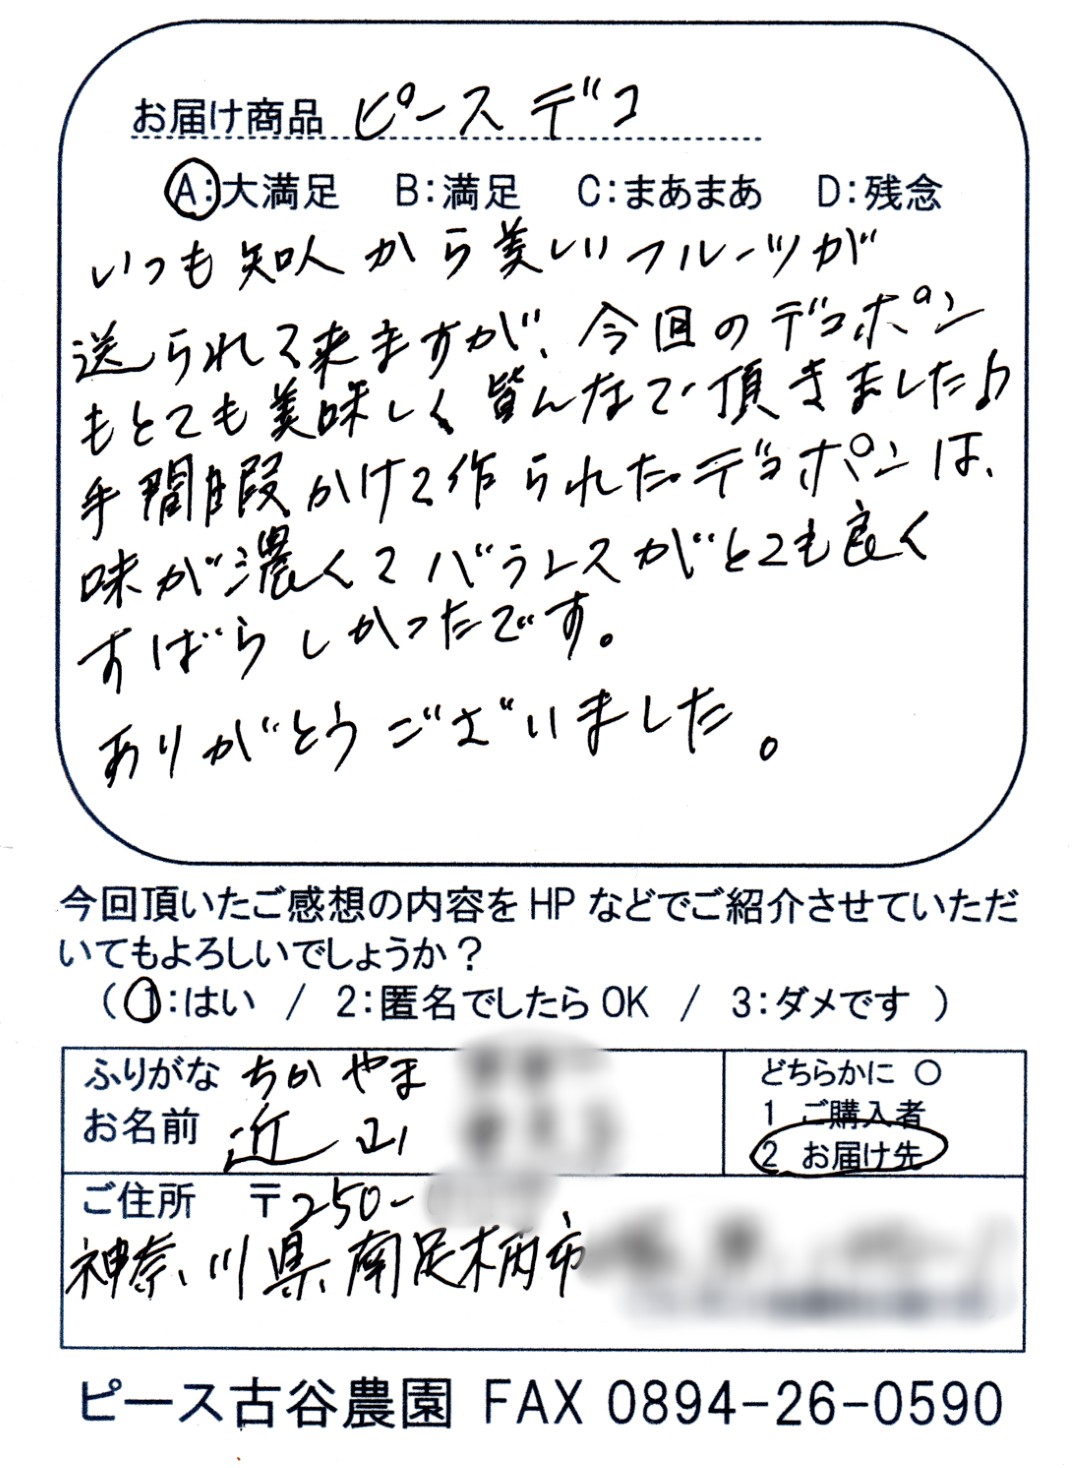 お届け商品 ピースデコ
A:大満足 B:満足 C:まあまあ D:残念
いつも知人から美しいフルーツが
送られて来ますが、今回のデコポン
もとても美味しく皆んなで頂きました♪
手間暇かけて作られたデコポンは、
味が濃くてバランスがとても良く
すばらしかったです。
ありがとうございました。
今回頂いたご感想の内容をHPなどでご紹介させていただ
いてもよろしいでしょうか?
(1:はい / 2:匿名でしたらOK / 3:ダメです )
ふりがな ちかやま
お名前 近山
どちらかに ○
1 ご購入者
2 お届け先
ご住所 〒250-
神奈川県南足柄市
ピース古谷農園 FAX 0894-26-0590